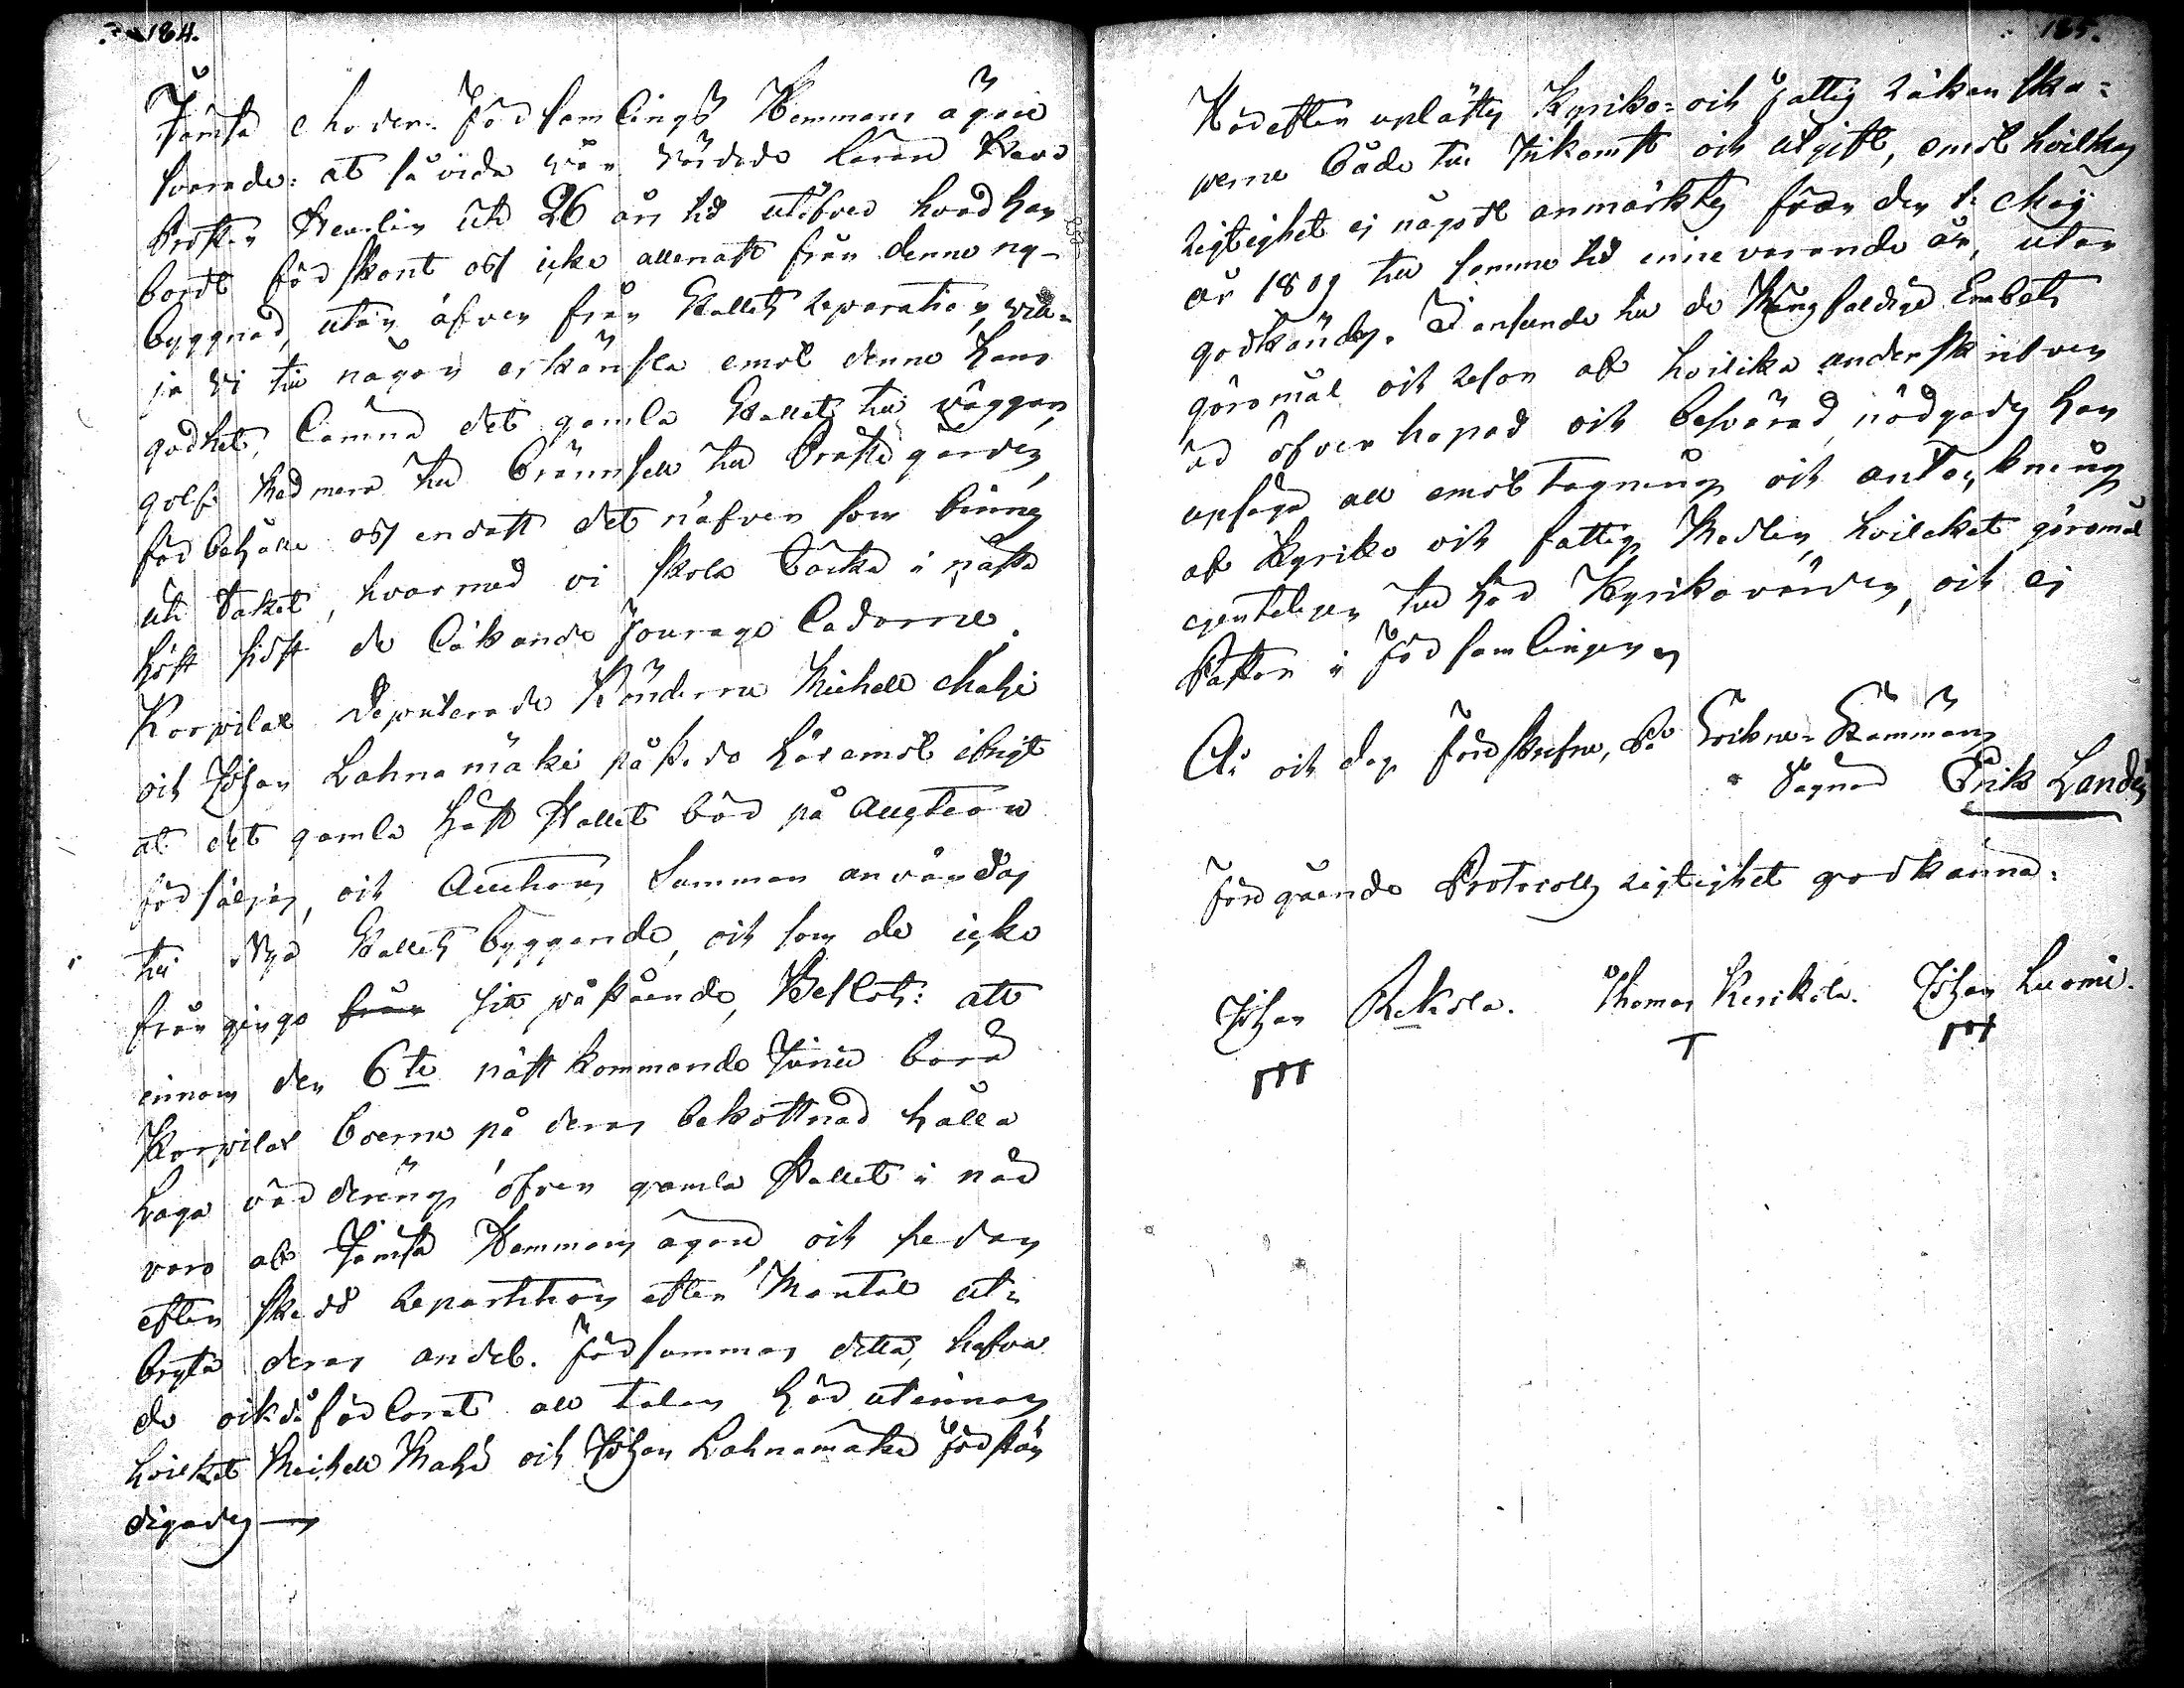 184.
Jämsä Moder Församlings Hemmans ägare
svarade: at så vida vår vördade Lärare Herr
Prosten Hemlin uti 26 års tid utöfver hvad han
bordt förskont oss icke allenast från denne ny-
byggnad, utan äfven från Stallets reparation, vil-
ja vi til någon erkänsla emot denne hans
godhet, lämna det gamla Stallets til väggar,
golf med mera til bränsle til Prästegården,
förbehålle oss endast det näfver som finnes
uti taket, hvarmed vi skola täcka i nästa
höst sidst de läkande Fourage Ladorne.
Korpilax deputerade Bönderne Michell Mahi
och Johan Lahnamäki påstodo häremot ifrigt
at det gamla Häst Stallet bör på Auction
försäljas, och Auctions Summan användas
til Nya Stallets byggande, och som de icke
frångingo från sit påstående, Beslöts: att
innom den 6te nästkommande Junii borde
Korpilax boerne på deras bekostnad hålla
Laga värdering öfver gamla Stallet i när
varo af Jämsä Hemmans ägare, och sedan
efter skedd repartition efter Mantal ut-
bryta deras andel. Försummas detta, hafva
de ock då förlorat all talan här utinnan
hvilket Michell Mahi och Johan Lahnamäki förstän
digades
185.
Härefter uplästes Kyriko- och Fattig räkenska-
perne både til Inkomst och utgift, emot hvilkas
rigtighet ej något anmärktes från den 1: Maij
år 1809 til samma tid innevarande år, utan
godkändes. I anseende til de Mångfaldige Embets
göromål och resor af hvilka underskrifven
är öfverhopad och besvärad, nödgades han
upsäga all emottagning och anteckning
af Kyriko och fattig Medlen, hvilcket göromål
egenteligen tilhör Kyrikovärden, och ej
Pastor i Församlingen
År och dag förskrefne, På Sockne-Stämmans
Vägnar Erik Landen
Föregående Protocolls rigtighet godkänna:
Johan Rekola. Thomas Kerikola. Johan Luomi.